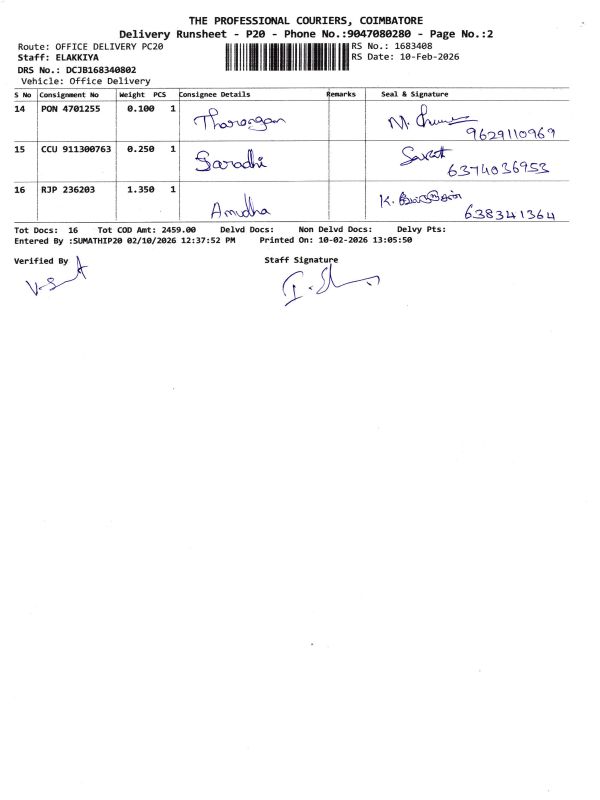 THE PROFESSIONAL COURIERS, COIMBATORE
Delivery Runsheet - P20 - Phone No.:9047080280 - Page No.:2
Route: OFFICE DELIVERY PC20
RS No.: 1683408
Staff: ELAKKIYA
RS Date: 10-Feb-2026
DRS No.: DCJB168340802
Vehicle: Office Delivery
S No Consignment No Weight PCS Consignee Details Remarks Seal & Signature
14 PON 4701255 0.100 1 Tharangan M.
9629110969
15 CCU 911300763 0.250 1 Saradhi
6374036953
16 RJP 236203 1.350 1 Amudha K.
638341364
Tot Docs: 16 Tot COD Amt: 2459.00 Delvd Docs: Non Delvd Docs: Delvy Pts:
Entered By :SUMATHIP20 02/10/2026 12:37:52 PM Printed On: 10-02-2026 13:05:50
Verified By Staff Signature